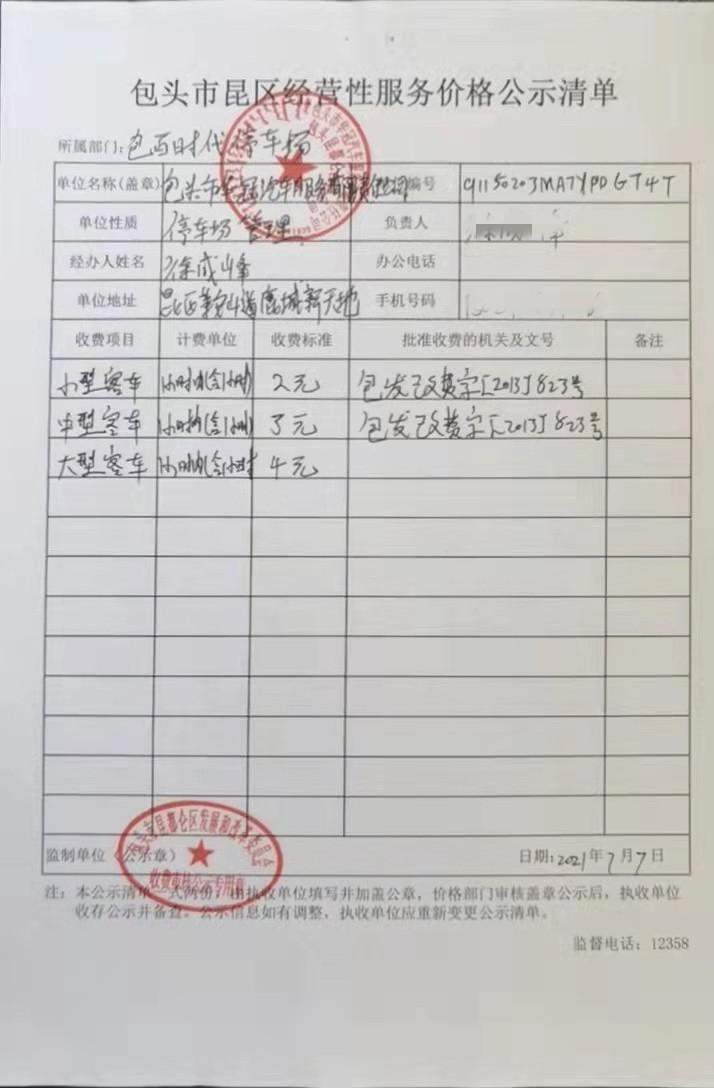 包头市昆区经营性服务价格公示清单
所属部门：包百时代停车场
单位名称（盖章） 包头市 冠汽车服务有限责任公司 编号 91150203MA7YPDGT4T
单位性质 停车场管理 负责人
经办人姓名 徐成峰 办公电话
单位地址 昆区 道鹿城新天地 手机号码
收费项目 计费单位 收费标准 批准收费的机关及文号 备注
小型客车 小时 2元 包发改费字[2013]823号
中型客车 小时 3元 包发改费字[2013]823号
大型客车 小时 4元
包头市昆都仑区发展和改革委员会
收费审核公示专用章
监制单位（公示章） 日期：2021年7月7日
注：本公示清单一式两份，由执收单位填写并加盖公章，价格部门审核盖章公示后，执收单位
收存公示并备查。公示信息如有调整，执收单位应重新变更公示清单。
监督电话：12358